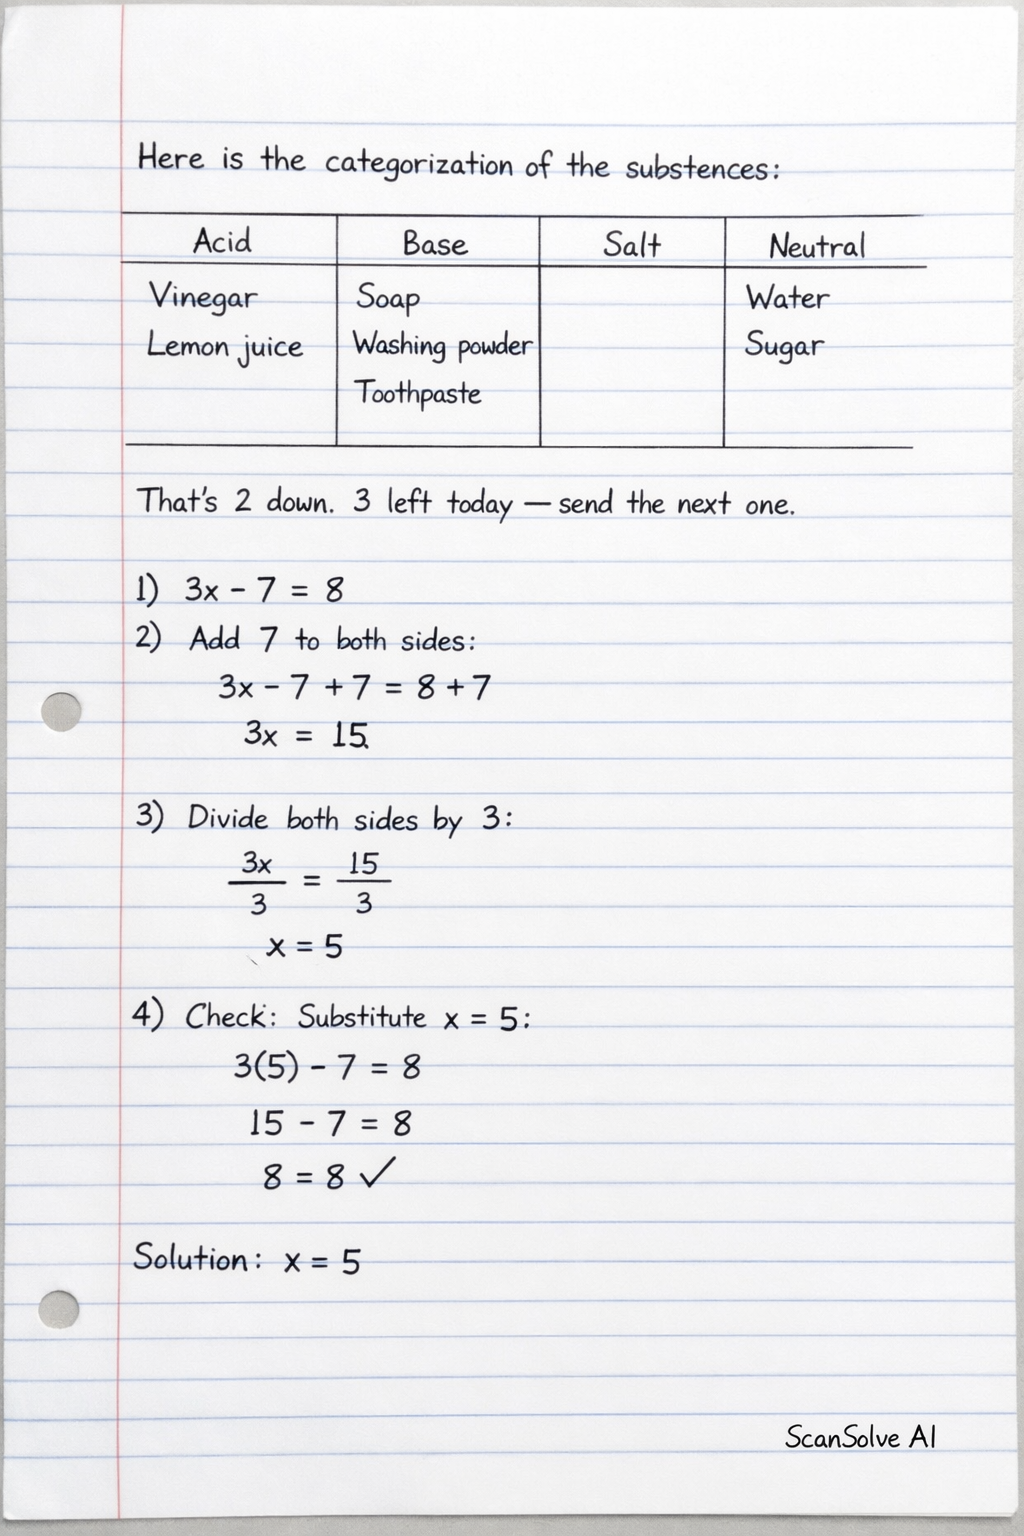 Here is the categorization of the substences:
Acid Base Salt Neutral
Vinegar Soap Water
Lemon juice Washing powder Sugar
Toothpaste
That's 2 down. 3 left today — send the next one.
1) 3x - 7 = 8
2) Add 7 to both sides:
3x - 7 + 7 = 8 + 7
3x = 15.
3) Divide both sides by 3:
3x/3 = 15/3
x = 5
4) Check: Substitute x = 5:
3(5) - 7 = 8
15 - 7 = 8
8 = 8 ✓
Solution: x = 5
ScanSolve AI